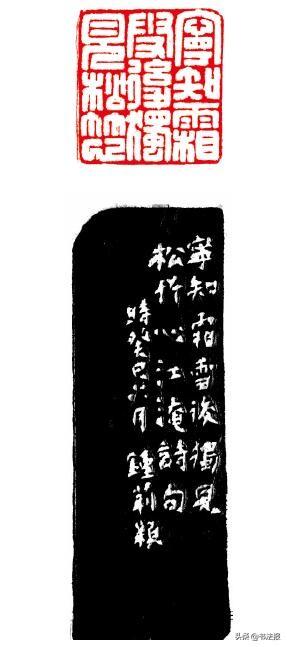 寧知霜
雪後獨
見松竹心
寧知霜雪後獨見
松竹心江淹詩句
時癸巳六月 鍾
头条@书法报